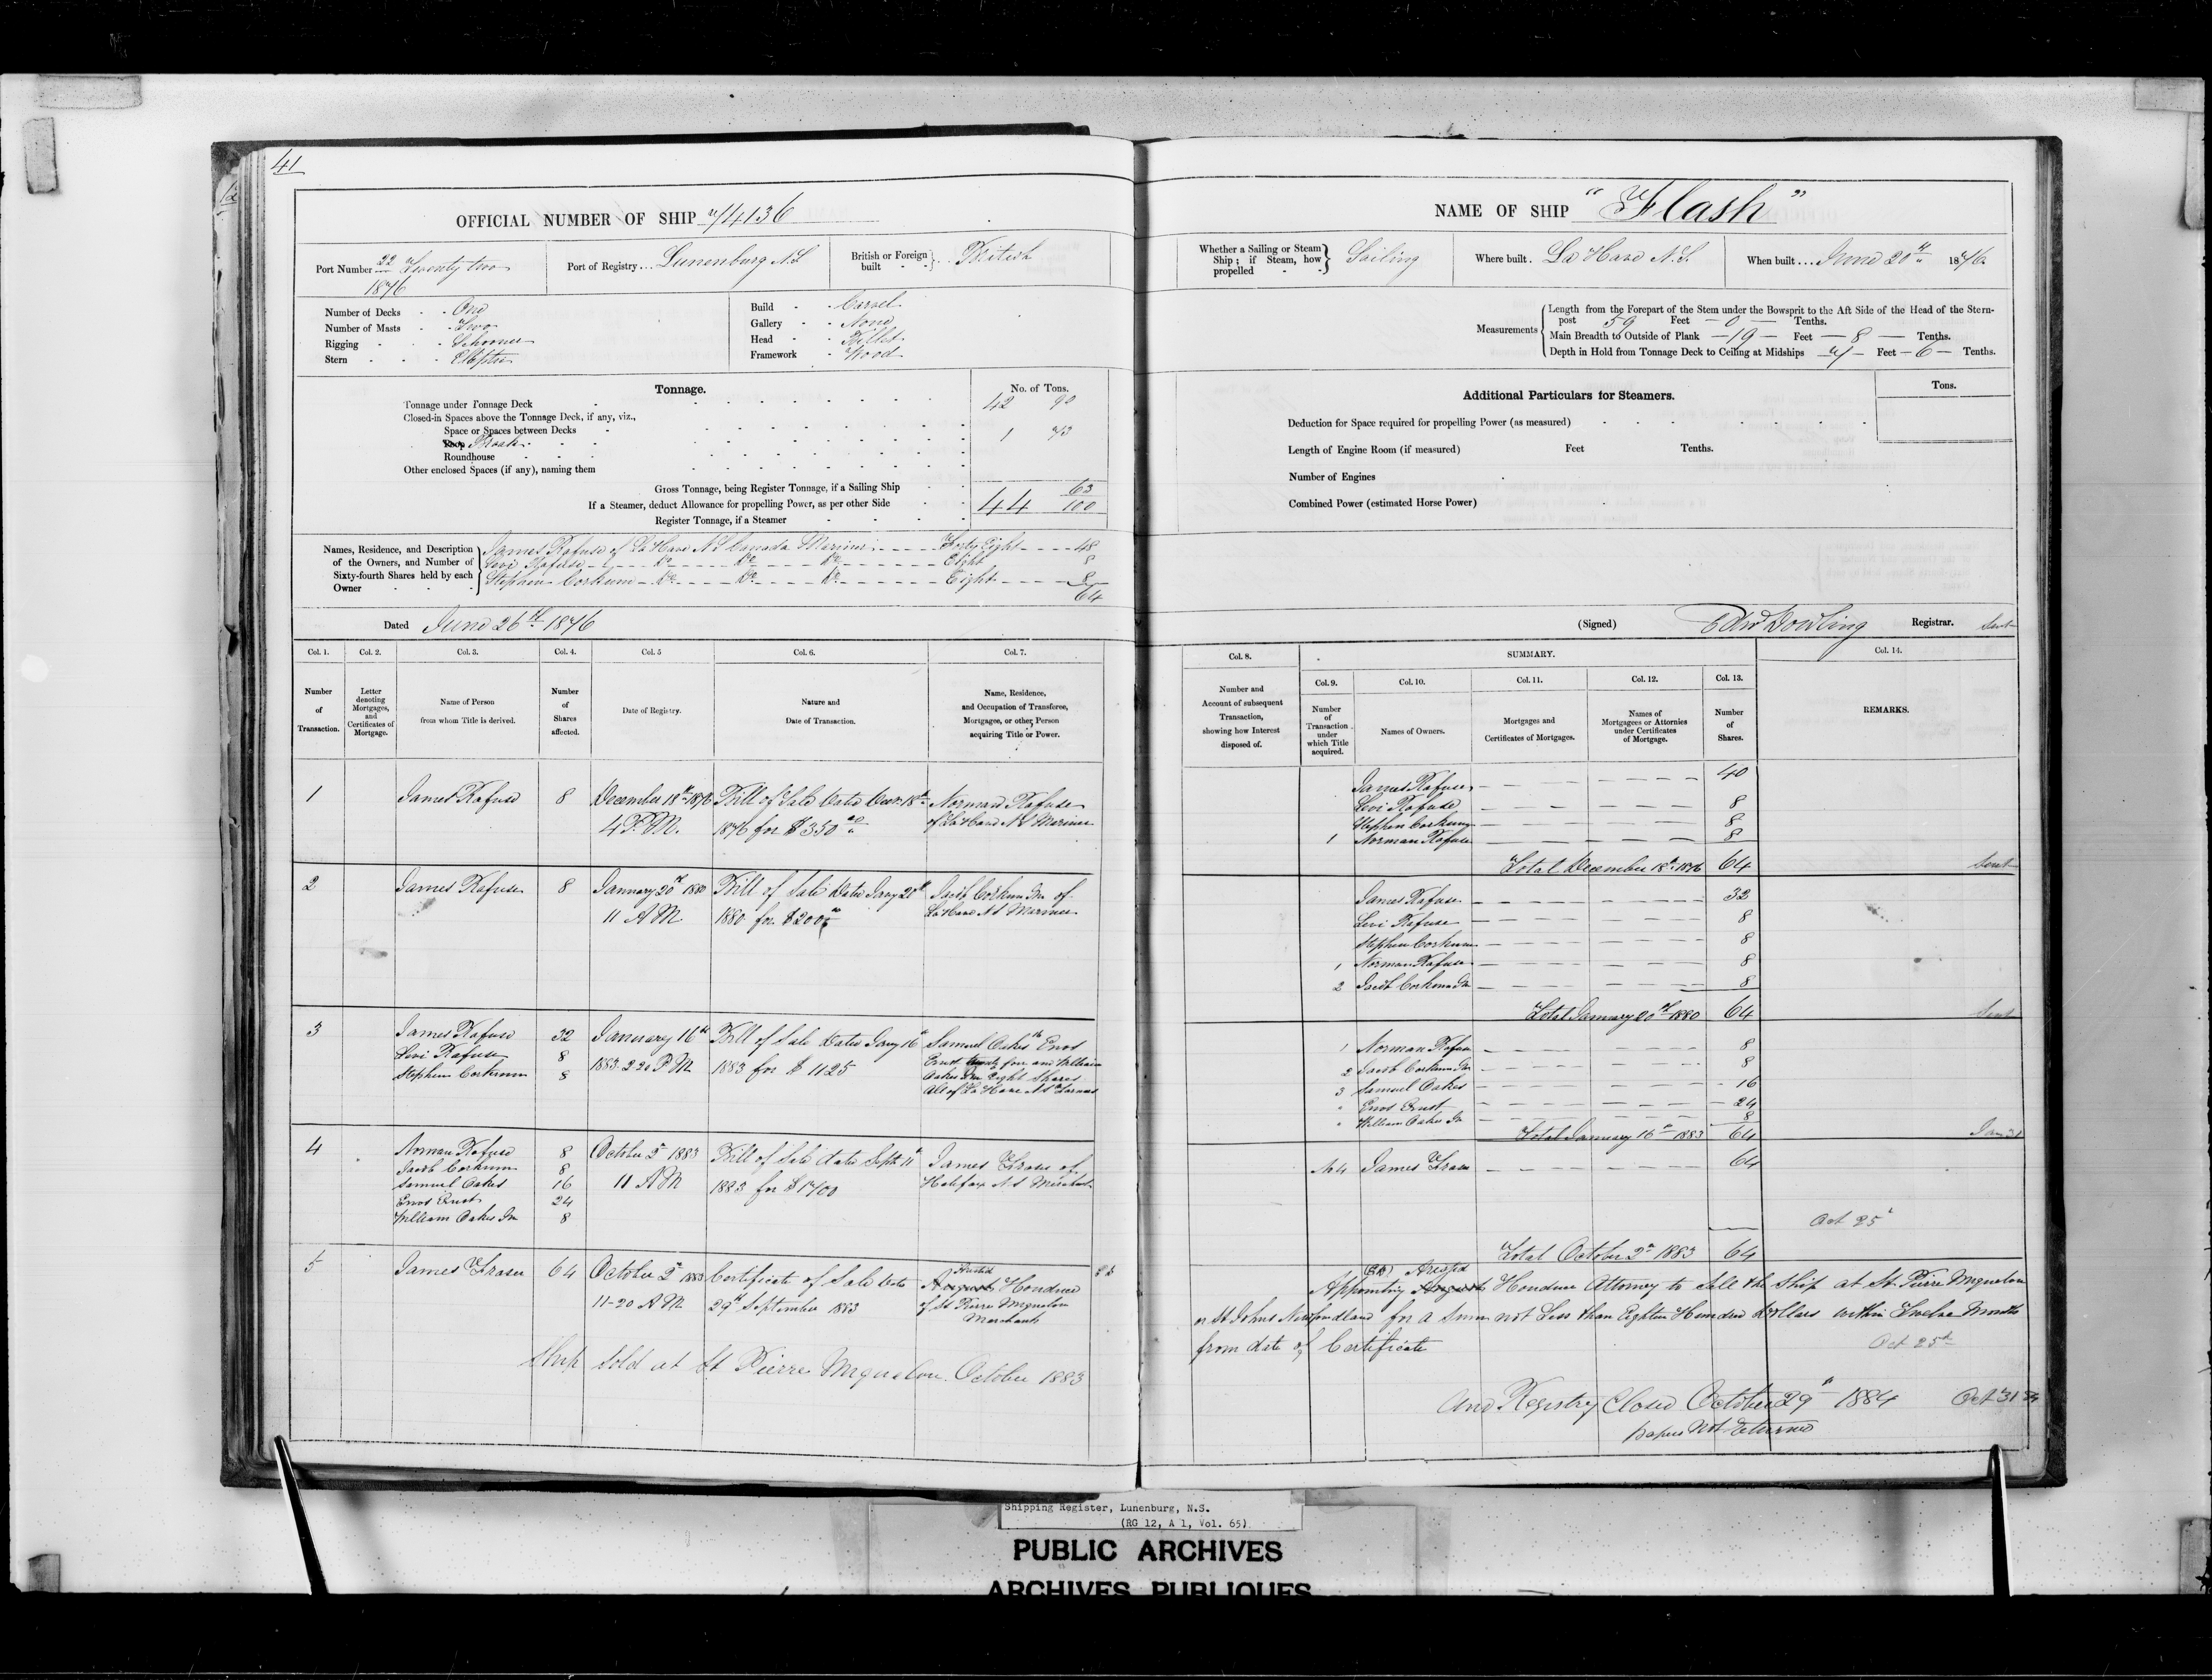 41
OFFICIAL NUMBER OF SHIP 74136
Port Number 22/1876 Twenty two
Port of Registry... Lunenburg N.S
British or Foreign built - - } British
Number of Decks - - One
Number of Masts - - Two
Rigging - - Schooner
Stern - - - Elliptic
Build - - Carvel
Gallery - - None
Head - - Billet
Framework - Wood
Tonnage.
No. of Tons.
Tonnage under Tonnage Deck 42 90
Closed-in Spaces above the Tonnage Deck, if any, viz.,
Space or Spaces between Decks
Poop Break 1 73
Roundhouse
Other enclosed Spaces (if any), naming them
Gross Tonnage, being Register Tonnage, if a Sailing Ship
If a Steamer, deduct Allowance for propelling Power, as per other Side 44 63/100
Register Tonnage, if a Steamer
Names, Residence, and Description of the Owners, and Number of Sixty-fourth Shares held by each Owner
James Rafuse of La Have N S Canada Mariner - - - - Forty Eight - - - - 48
Levi Rafuse - - Do - - - - Do - - - - Do - - - - Eight 8
Stephen Corkum - Do - - - - Do - - - - Do - - - - Eight - - - - 8
64
Dated June 26th 1876
Col. 1. Col. 2. Col. 3. Col. 4. Col. 5 Col. 6. Col. 7.
Number of Transaction.
Letter denoting Mortgages, and Certificates of Mortgage.
Name of Person from whom Title is derived.
Number of Shares affected.
Date of Registry.
Nature and Date of Transaction.
Name, Residence, and Occupation of Transferee, Mortgagee, or other Person acquiring Title or Power.
1 James Rafuse 8 December 18th 1876 Bill of Sale Dated Decr 18th Norman Rafuse
4 P.M. 1876 for $350 of La Have N S Mariner
2 James Rafuse 8 January 20th 1880 Bill of Sale Dated Jany 20th Jacob Corkum Jnr of
11 A M 1880 for $200 La Have N S Mariner
3 James Rafuse 32 January 16th Bill of Sale Dated Jany 16th Samuel Oakes Enos
Levi Rafuse 8 1883 2 20 P M 1883 for $ 1125 Ernst four and William
Stephen Corkum 8 Oakes Jnr Eight Shares
All of La Have N S
4 Norman Rafuse 8 October 2nd 1883 Bill of Sale dated Septr 11th James Fraser of
Jacob Corkum 8 11 A M 1883 for $1700 Halifax N S Merchant
Samuel Oakes 16
Enos Ernst 24
William Oakes Jnr 8
5 James Fraser 64 October 2nd 1883 Certificate of Sale Date August Honduce
11-20 A M 29th September 1883 of St Pierre Miquelon
Merchant
Ship Sold at St Pierre Miquelon October 1883
NAME OF SHIP "Flash"
Whether a Sailing or Steam Ship; if Steam, how propelled - - } Sailing
Where built. La Have N.S.
When built... June 20th 1876.
Measurements
Length from the Forepart of the Stem under the Bowsprit to the Aft Side of the Head of the Stern-
post 59 Feet - 0 - Tenths.
Main Breadth to Outside of Plank - 19 - Feet - 8 - Tenths.
Depth in Hold from Tonnage Deck to Ceiling at Midships 7 - Feet - 6 - Tenths.
Additional Particulars for Steamers.
Tons.
Deduction for Space required for propelling Power (as measured)
Length of Engine Room (if measured) Feet Tenths.
Number of Engines
Combined Power (estimated Horse Power)
(Signed) Edw Dowling Registrar. Sent
Col. 8. SUMMARY. Col. 14.
Col. 9. Col. 10. Col. 11. Col. 12. Col. 13.
Number and Account of subsequent Transaction, showing how Interest disposed of.
Number of Transaction under which Title acquired.
Names of Owners.
Mortgages and Certificates of Mortgages.
Names of Mortgagees or Attornies under Certificates of Mortgage.
Number of Shares.
REMARKS.
James Rafuse 40
Levi Rafuse 8
Stephen Corkum 8
1 Norman Rafuse 8
Total December 18th 1876 64 Sent
James Rafuse 32
Levi Rafuse 8
Stephen Corkum 8
1 Norman Rafuse 8
2 Jacob Corkum Jnr 8
Total January 20th 1880 64 Sent
1 Norman Rafuse 8
2 Jacob Corkum Jnr 8
3 Samuel Oakes 16
" Enos Ernst 24
" William Oakes Jr 8
Total January 16th 1883 64 Jan 31
No 4 James Fraser 64
Oct 25
Total October 2nd 1883 64
Appointing August Honduce Attorney to Sell the Ship at St. Pierre Miquelon
or St Johns Newfoundland for a Sum not Less than Eighteen Hundred dollars within Twelve Months
from date of Certificate
Oct 25th
and Registry Closed October 29th 1884 Oct 31 84
papers Not Returned
Shipping Register, Lunenburg, N.S.
(RG 12, A 1, Vol. 65)
PUBLIC ARCHIVES
ARCHIVES PUBLIQUES